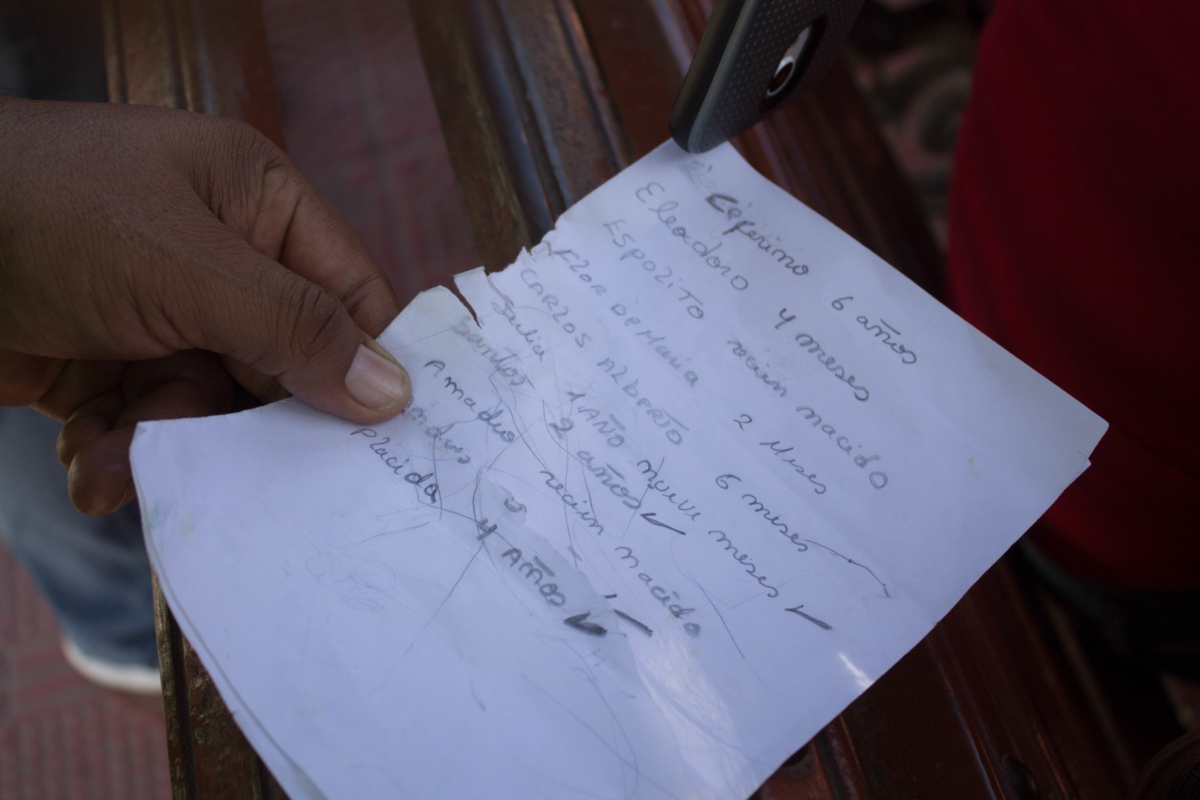 Ceferimo 6 años
Eleodoro 4 meses
ESPOZITO recien nacido
FLOR DE MARIA 2 Meses
CARLOS ALBERTO 6 meses
Julia 1 AÑO nueve meses
Santos 2 años
Amadeo recien nacido
3
Placida 4 AÑOS